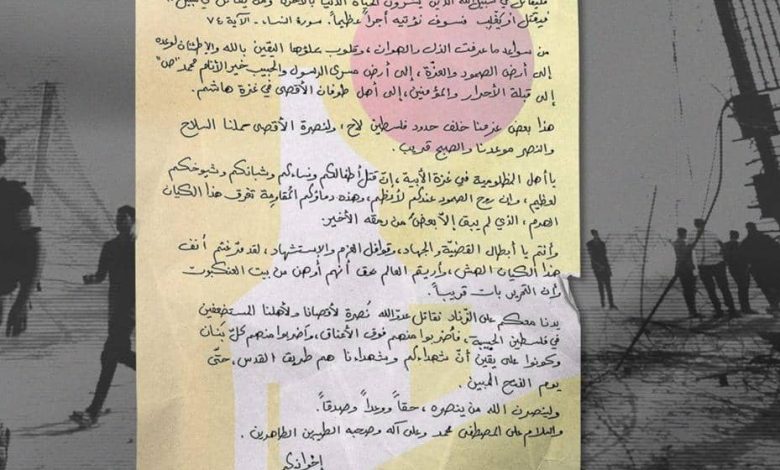 فليقاتل في سبيل الله الذين يشرون الحياة الدنيا بالآخرة ومن يقاتل في سبيل
فيقتل أو يغلب فسوف نؤتيه أجراً عظيماً. سورة النساء - الآية ٧٤
من سواعد ما عرفت الذل والهوان، وقلوب ملؤها اليقين بالله والاطمئنان لوعده
إلى أرض الصمود والعزّة، إلى أرض مسرى الرسول والحبيب خير الأنام محمد "ص"
إلى قبلة الأحرار والمؤمنين، إلى أهل طوفان الأقصى في غزة هاشم.
هذا بعض عزمنا خلف حدود فلسطين لاح، ولنصرة الأقصى حملنا السلاح
والنصر موعدنا والصبح قريب.
يا أهل المظلومية في غزة الأبية، إن قتل أطفالكم ونساءكم وشبانكم وشيوخكم
لعظيم، وإن روح الصمود عندكم لأعظم، وهذه دماؤكم المقاومة تغرق هذا الكيان
الهرم، الذي لم يبق إلا بعضٌ من رمقه الأخير.
وأنتم يا أبطال القضيّة والجهاد، وقوافل العزم والاستشهاد، لقد مرّغتم أنف
هذا الكيان الهش، وأريتم العالم عن أنهم أوهن من بيت العنكبوت
وأن التحرير بات قريباً.
يدنا معكم على الزّناد نقاتل عدّالله نُصرة لأقصانا ولأهلنا المستضعفين
في فلسطين الحبيبة، فاضربوا منهم فوق الأعناق، واضربوا منهم كلّ بنان
وكونوا على يقين أنّ شهداءكم وشهداءنا هم طريق القدس، حتّى
يوم الفتح المبين.
ولينصرن الله من ينصره، حقاً ووعداً وصدقاً.
والسلام على المصطفى محمد وعلى آله وصحبه الطيبين الطاهرين.
إخوانكم